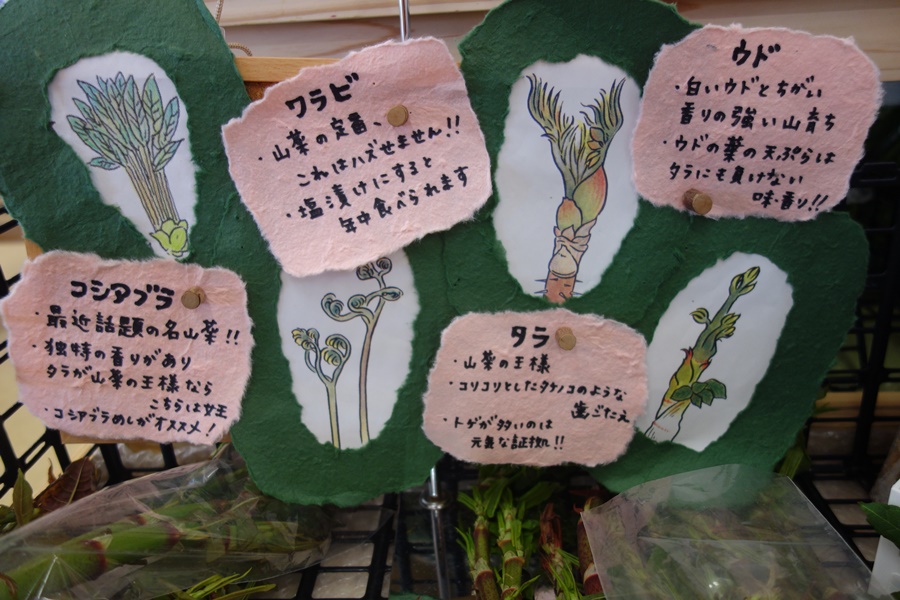 ワラビ
・山菜の定番、
これはハズせません!!
・塩漬けにすると
年中食べられます
ウド
・白いウドとちがい
香りの強い山育ち
・ウドの葉の天ぷらは
タラにも負けない
味・香り!!
コシアブラ
・最近話題の名山菜!!
・独特の香りがあり
タラが山菜の王様なら
こちらは女王
・コシアブラめしがオススメ!
タラ
・山菜の王様
・コリコリとしたタケノコのような
歯ごたえ
・トゲが多いのは
元気な証拠!!